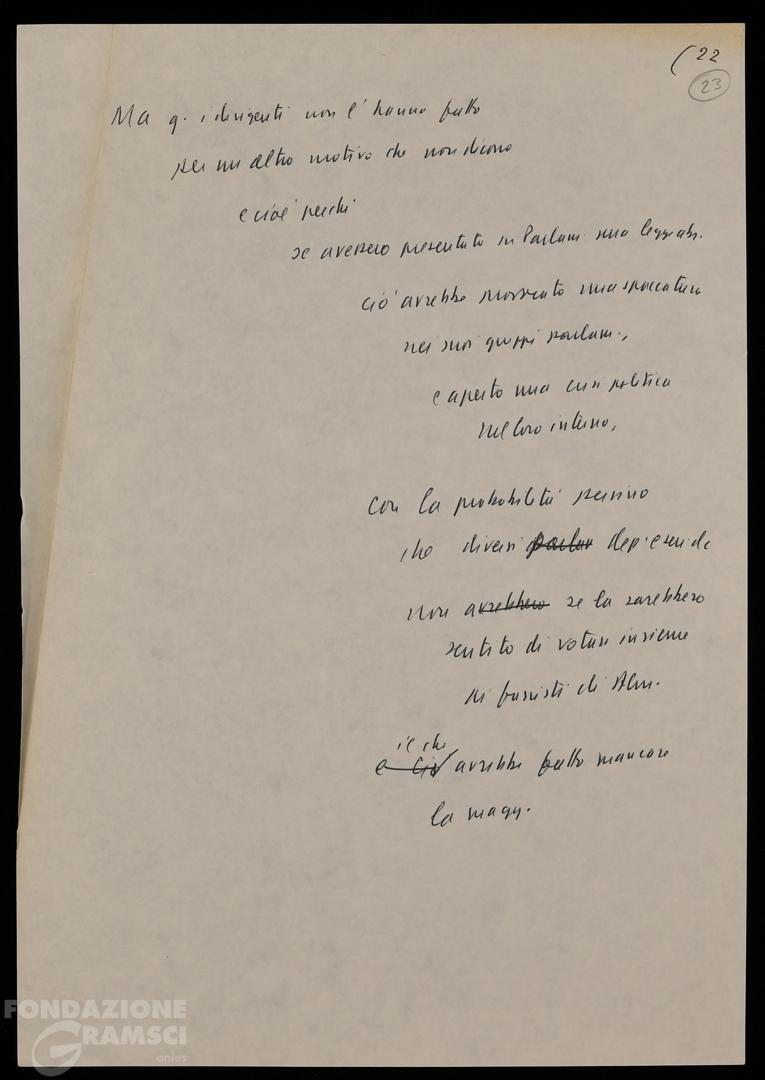 (22
23
Ma q. i dirigenti non l'hanno fatto
per un altro motivo che non dicono
e cioè perchè
se avessero presentato in Parlam. una legge
ciò avrebbe provocato una spaccatura
nei suoi gruppi parlam.,
e aperto una crisi politica
nel loro interno,
con la probabilità persino
che diversi parlam dep. e sen. dc
non avrebbero se la sarebbero
sentito di votare insieme
ai fascisti di Alm.
il che
e ciò avrebbe fatto mancare
la magg.
FONDAZIONE
GRAMSCI
onlus